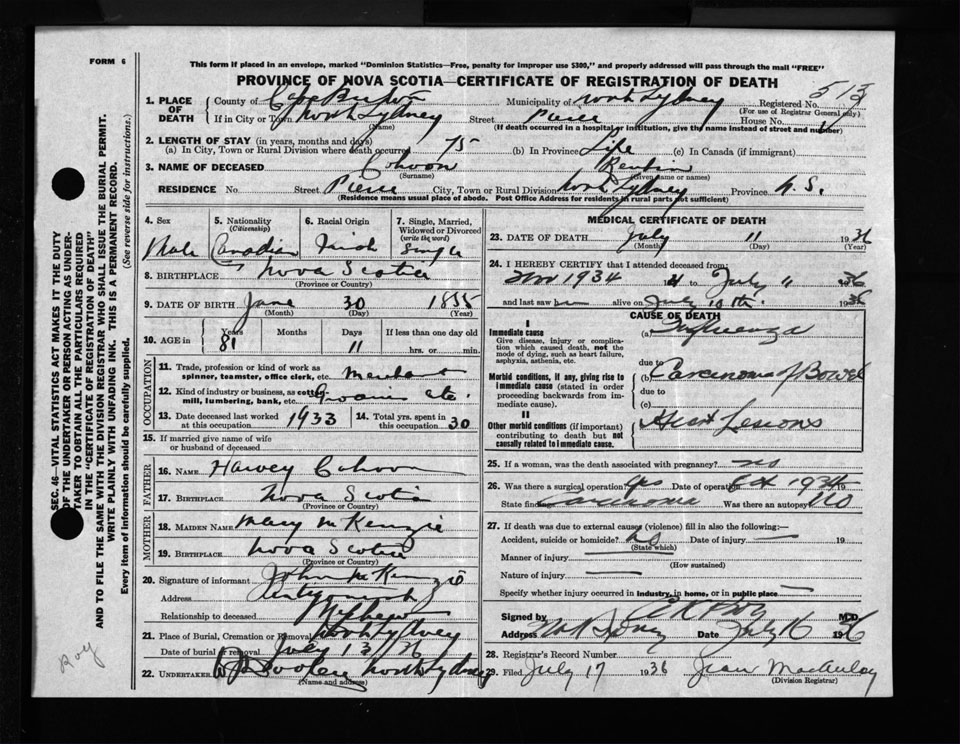 FORM 6
This form if placed in an envelope, marked "Dominion Statistics—Free, penalty for improper use $300," and properly addressed will pass through the mail "FREE"
PROVINCE OF NOVA SCOTIA—CERTIFICATE OF REGISTRATION OF DEATH
513
1. PLACE OF DEATH County of Cape Breton Municipality of North Sydney Registered No.
(For use of Registrar General only)
If in City or Town North Sydney Street Pierce House No.
(Name) (If death occurred in a hospital or institution, give the name instead of street and number)
2. LENGTH OF STAY (in years, months and days)
(a) In City, Town or Rural Division where death occurred 75 (b) In Province Life (c) In Canada (if immigrant)
3. NAME OF DECEASED Cohoon Reubin
(Surname) (Given name or names)
RESIDENCE No. Street Pierce City, Town or Rural Division North Sydney Province N.S.
(Residence means usual place of abode. Post Office Address for residents in rural parts not sufficient)
4. Sex 5. Nationality (Citizenship) 6. Racial Origin 7. Single, Married, Widowed or Divorced (write the word)
Male Canadian Irish Single
8. BIRTHPLACE Nova Scotia
(Province or Country)
9. DATE OF BIRTH June 30 1855
(Month) (Day) (Year)
10. AGE in Years Months Days If less than one day old
81 11 hrs. or min.
OCCUPATION
11. Trade, profession or kind of work as spinner, teamster, office clerk, etc. Merchant
12. Kind of industry or business, as cotton mill, lumbering, bank, etc.
13. Date deceased last worked at this occupation 1933 14. Total yrs. spent in this occupation 30
15. If married give name of wife or husband of deceased
FATHER
16. NAME Harvey Cohoon
17. BIRTHPLACE Nova Scotia
(Province or Country)
MOTHER
18. MAIDEN NAME Mary McKenzie
19. BIRTHPLACE Nova Scotia
(Province or Country)
20. Signature of informant John McKenzie
Address Antigonish
Relationship to deceased Nephew
21. Place of Burial, Cremation or Removal North Sydney
Date of burial or removal July 13/36
22. UNDERTAKER North Sydney
(Name and address)
MEDICAL CERTIFICATE OF DEATH
23. DATE OF DEATH July 11 1936
(Month) (Day) (Year)
24. I HEREBY CERTIFY that I attended deceased from:
Nov 1934 to July 11 1936
and last saw him alive on July 10th. 1936
CAUSE OF DEATH
I
Immediate cause (a) Influenza
Give disease, injury or complication which caused death, not the mode of dying, such as heart failure, asphyxia, asthenia, etc.
due to
Morbid conditions, if any, giving rise to immediate cause (stated in order proceeding backwards from immediate cause). (b) Carcinoma of Bowel
due to
(c)
II
Other morbid conditions (if important) contributing to death but not causally related to immediate cause. Heart Lesions
25. If a woman, was the death associated with pregnancy? no
26. Was there a surgical operation? Yes Date of operation Oct 1934 19
State findings Carcinoma Was there an autopsy? No
27. If death was due to external causes (violence) fill in also the following:—
Accident, suicide or homicide? No Date of injury 19
(State which)
Manner of injury
(How sustained)
Nature of injury
Specify whether injury occurred in industry, in home, or in public place
Signed by M.D.
Address No Sydney Date July 16 1936
28. Registrar's Record Number
29. Filed July 17 1936 Jean MacAulay
(Division Registrar)
SEC. 46—VITAL STATISTICS ACT MAKES IT THE DUTY
OF THE UNDERTAKER OR PERSON ACTING AS UNDER-
TAKER TO OBTAIN ALL THE PARTICULARS REQUIRED
IN THE "CERTIFICATE OF REGISTRATION OF DEATH"
AND TO FILE THE SAME WITH THE DIVISION REGISTRAR WHO SHALL ISSUE THE BURIAL PERMIT.
WRITE PLAINLY WITH UNFADING INK. THIS IS A PERMANENT RECORD.
Every item of information should be carefully supplied. (See reverse side for instructions.)
Roy